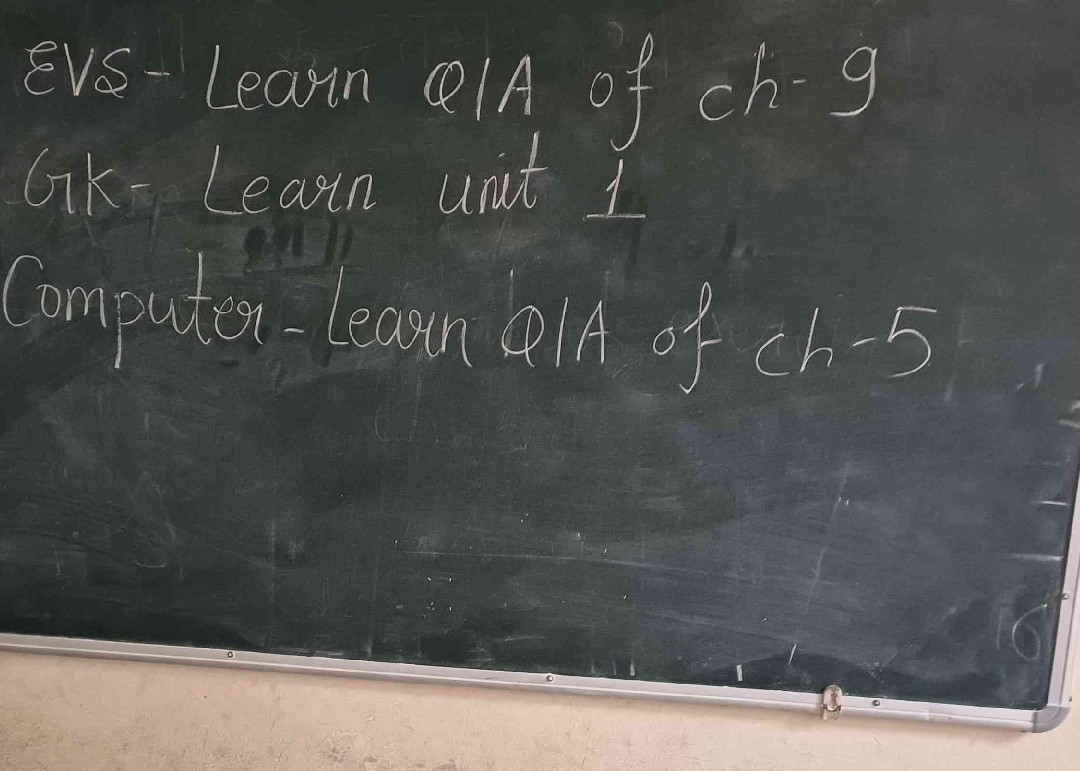 EVS- Learn Q/A of ch-9
GK- Learn unit 1
Computer-Learn Q/A of ch-5
16